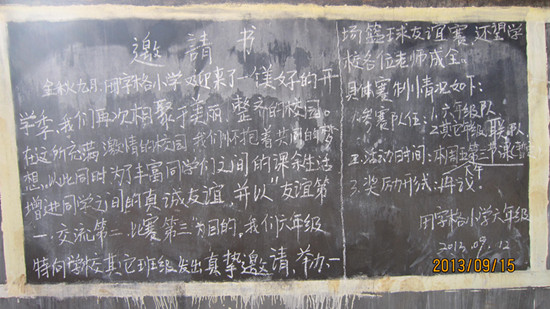 邀請书
金秋九月,田字格小学迎来了一个美好的开
学季,我们再次相聚于美丽、整齐的校园。
在这所充满激情的校园,我们怀抱着共同的梦
想,以此同时为了丰富同学们之间的课余生活
增进同学之间的真诚友谊,并以“友谊第
一,交流第二,比赛第三”为目的,我们六年级
特向学校其它班级发出真挚邀请,举办一
场篮球友谊赛,还望学
校各位老师成全。
具体赛制情况如下:
1.参赛队伍:1.六年级队
2.其它年级联队
2.活动时间:本周五第三节课
3.奖励形式:再议。
田字格小学六年级
2013.09.12
2013/09/15